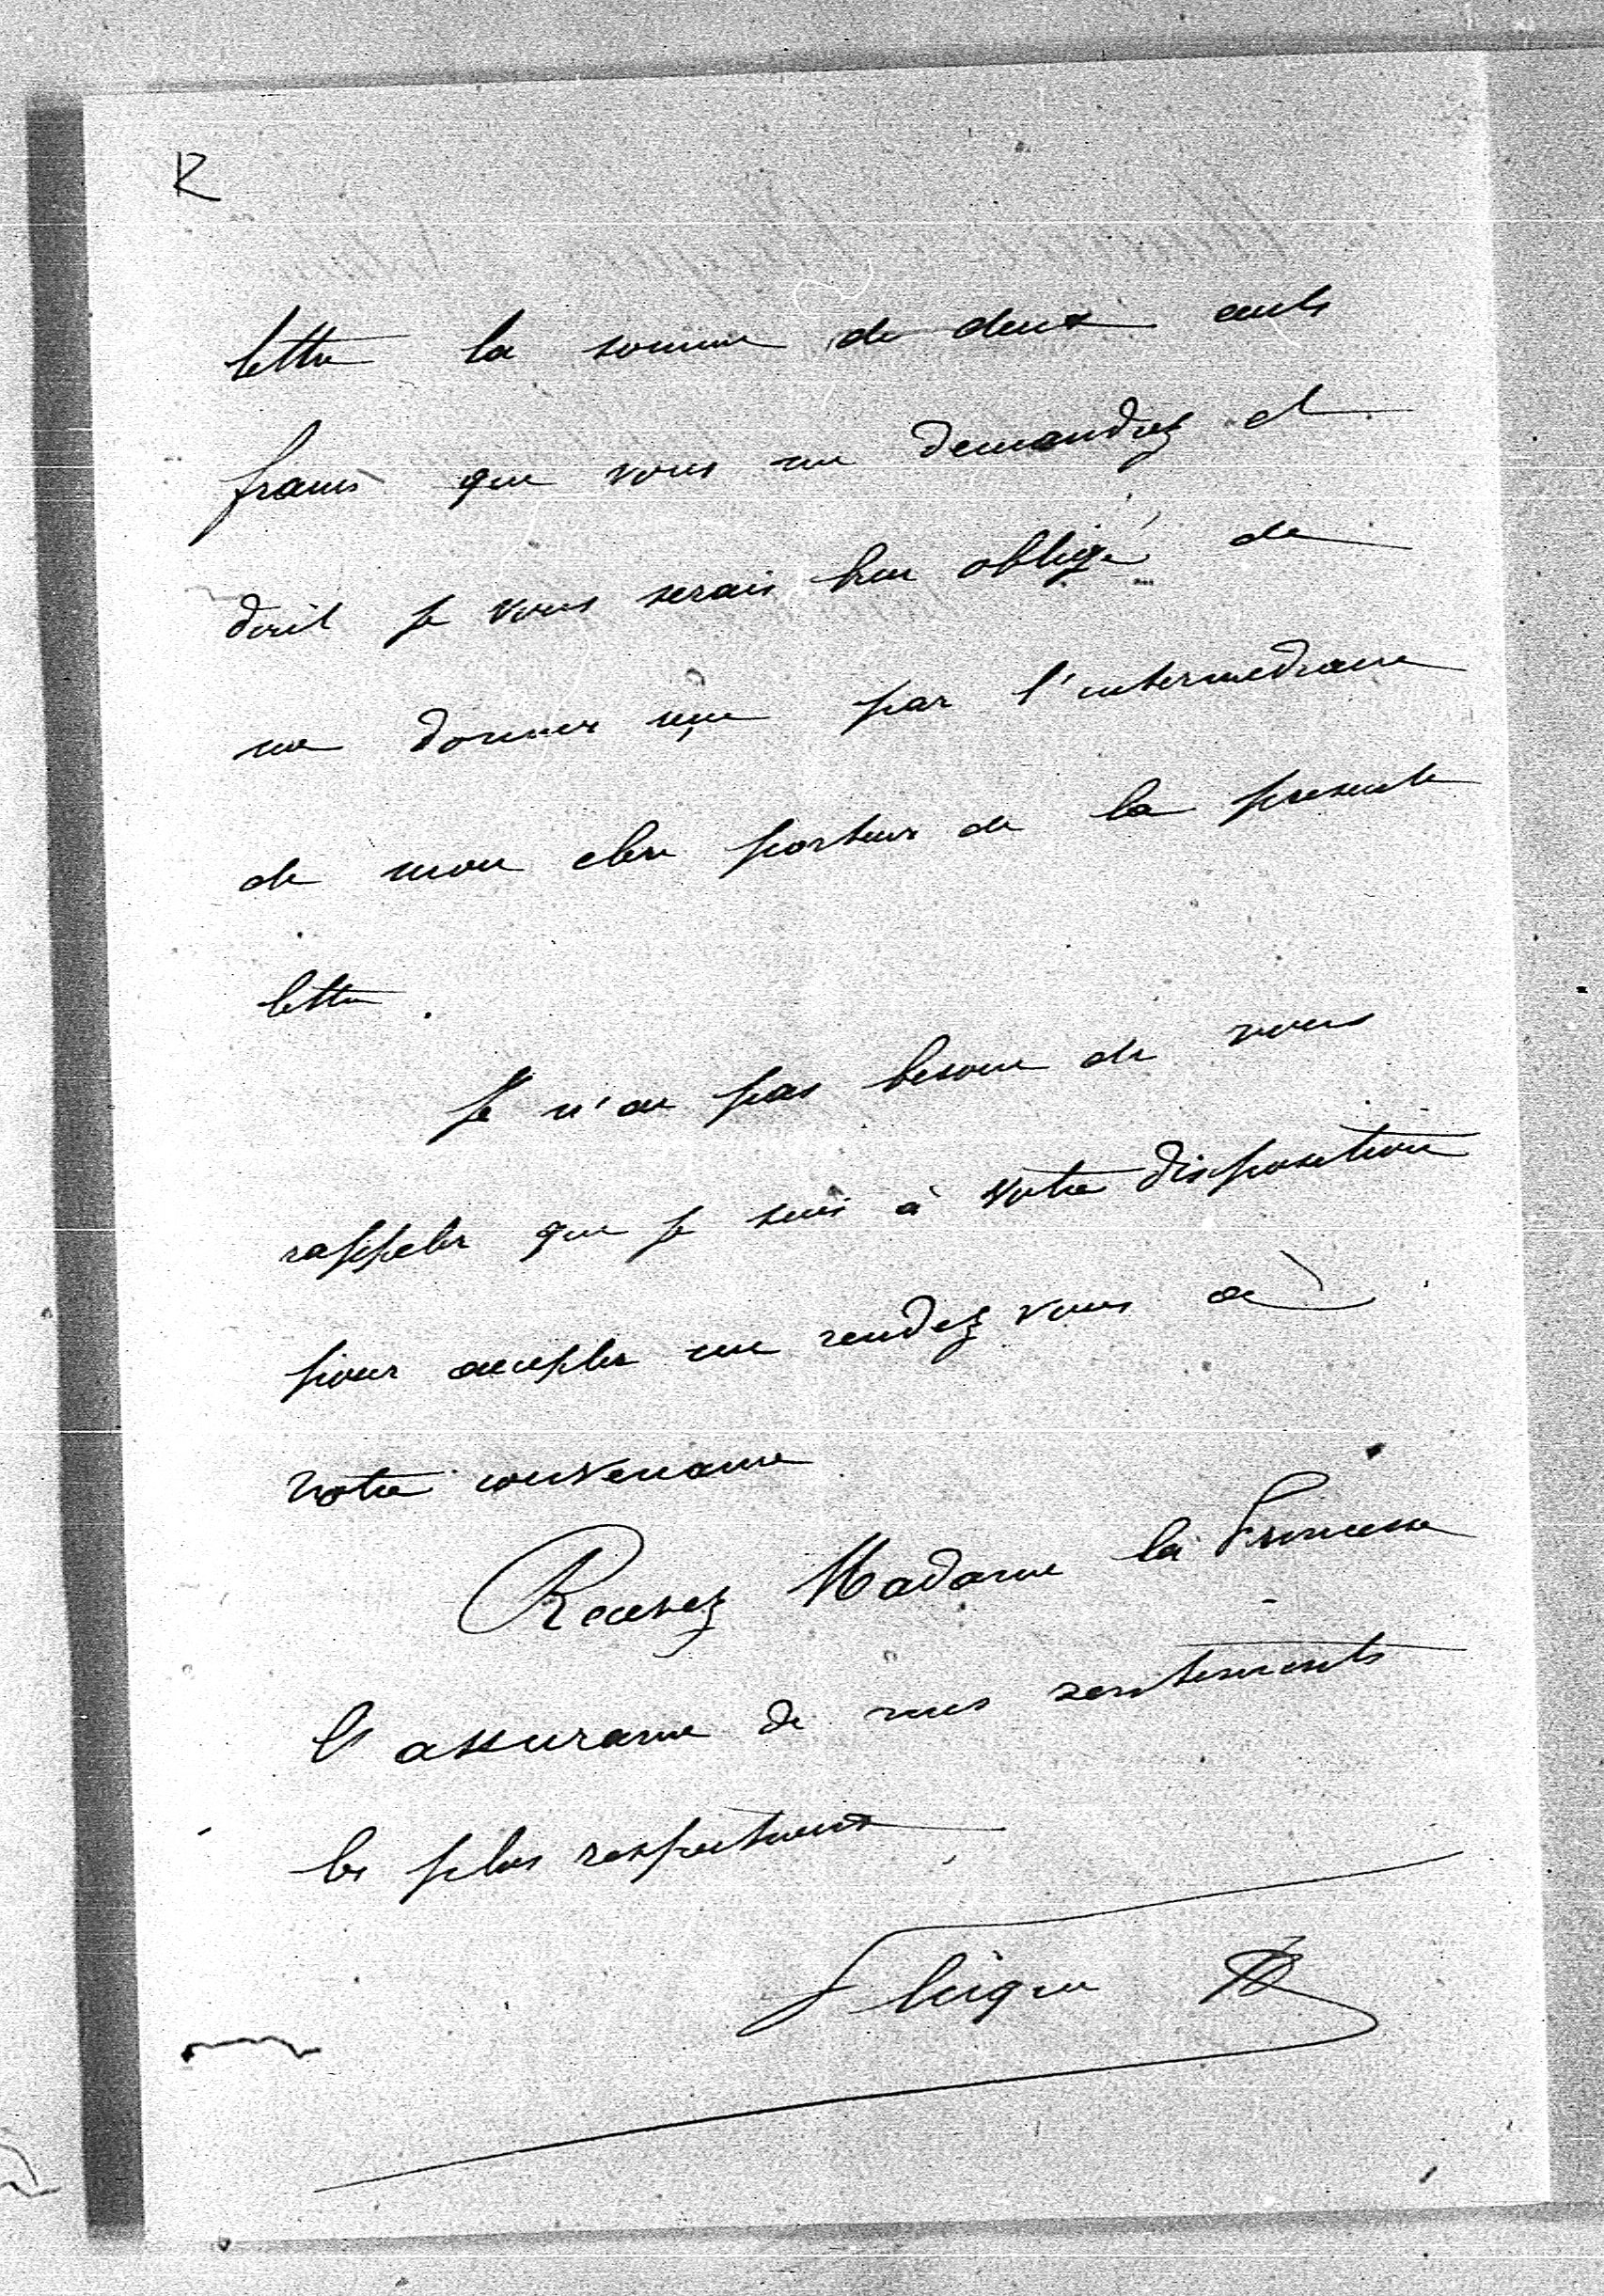 R
lettre la somme de deux cents
francs que vous me demandiez et
dont je vous serais bien obligé de
me donner reçu par l'intermediaire
de mon clerc porteur de la presente
lettre.
Je n'ai pas besoin de vous
rappeler que je suis à votre disposition
pour accepter un rendez vous à
votre convenance
Recevez Madame la Princesse
l'assurance de mes sentiments
les plus respectueux